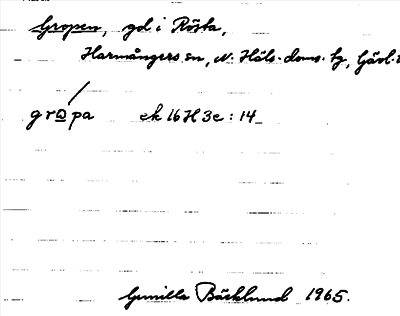 Gropen, gd i Rösta,
Harmångers sn, N. Häls. doms. tg, Gävl.
gropa ek 16H3e:14
Gunilla Bäcklund 1965.